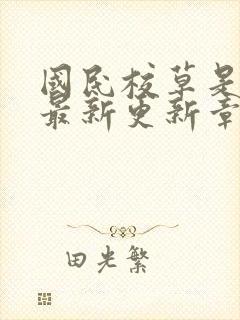 國民校草是
最新更新章
田光繁